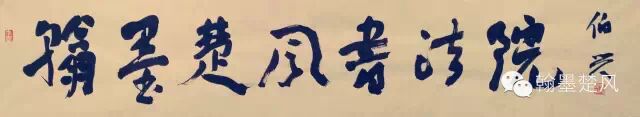 翰墨楚风书法院
伯
翰墨楚风